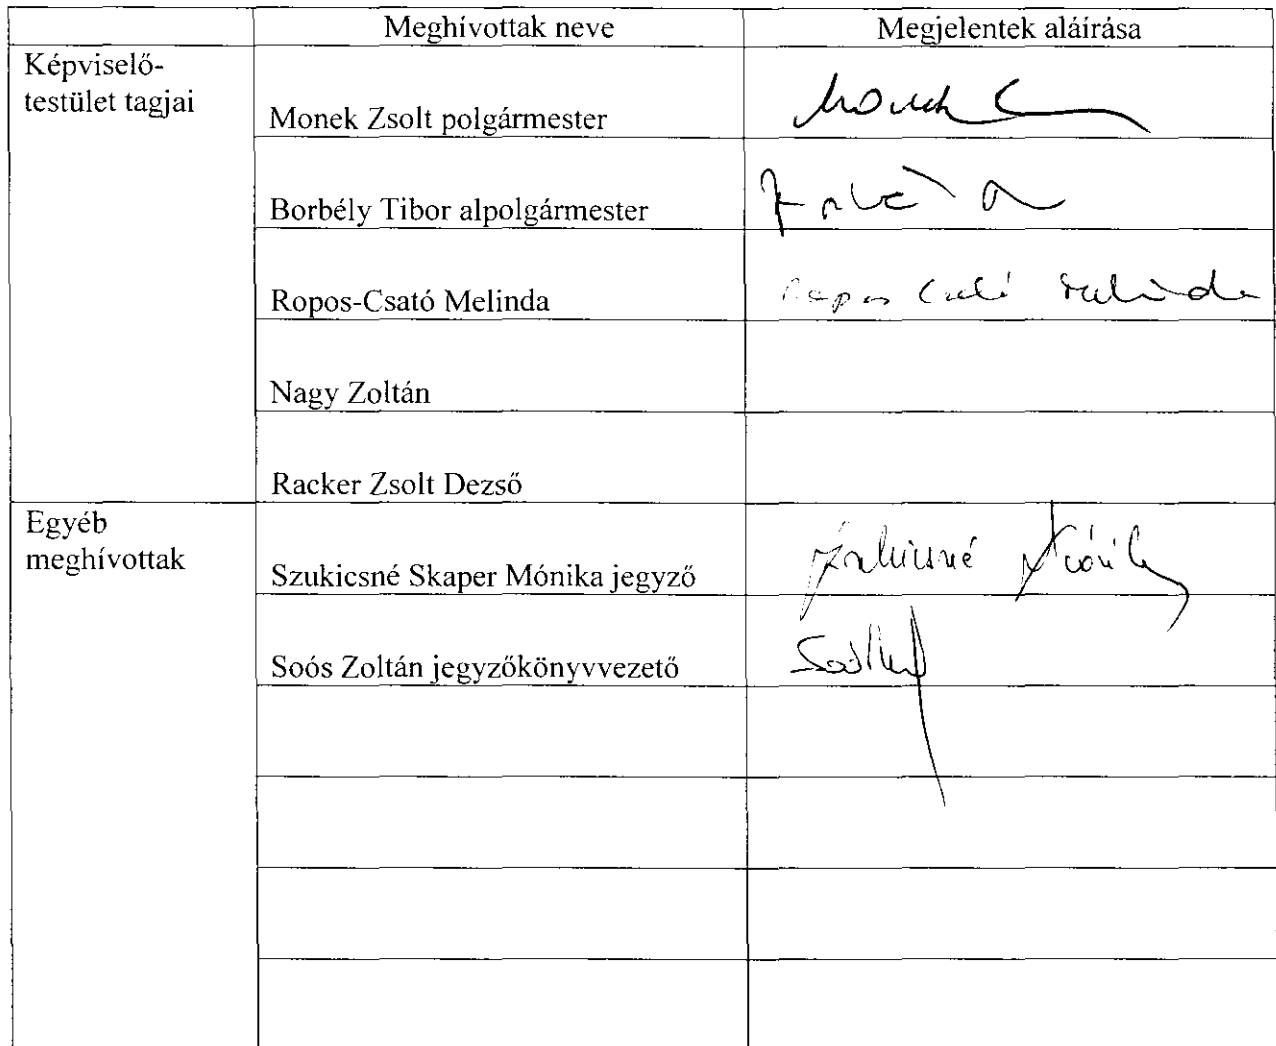 Meghívottak neve Megjelentek aláírása
Képviselő-
testület tagjai
Monek Zsolt polgármester
Borbély Tibor alpolgármester
Ropos-Csató Melinda
Nagy Zoltán
Racker Zsolt Dezső
Egyéb
meghívottak
Szukicsné Skaper Mónika jegyző
Soós Zoltán jegyzőkönyvvezető